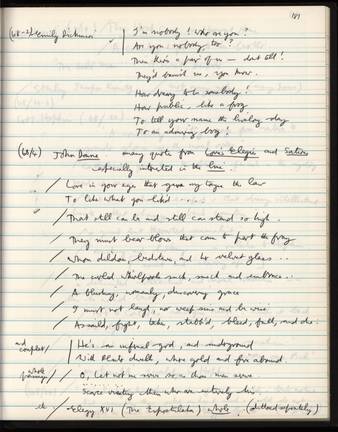 189
(68-2) Emily Dickinson / I'm nobody! Who are you?
Are you nobody too?
Then there's a pair of us — don't tell!
They'd banish us, you know.
How dreary to be somebody!
How public, like a frog
To tell your name the livelong day
To an admiring bog!
(68/4) John Donne many quotes from Love's Elegies and Satires
especially interested in the line
/ Love in your eyes that gave my tongue the law
To like what you liked
/ That still can be and still can stand so high.
/ They must bear blows that come to part the fray
/ Whom dildoes, bedstaves, and her velvet glass ..
/ The wild whirlpools suck, and embrace ..
/ A blushing, womanly, discovering grace
/ I must not laugh, nor weep sins and be wise
/ Assaild, fight, taken, stabb'd, bleed, fall, and die.
and couplet / He's an infernal god, and underground
With Pluto dwells, where gold and fire abound.
whole passage / O, Let not me serve so as those men serve
/ Elegy XVI (The Expostulation) whole (dictated separately)